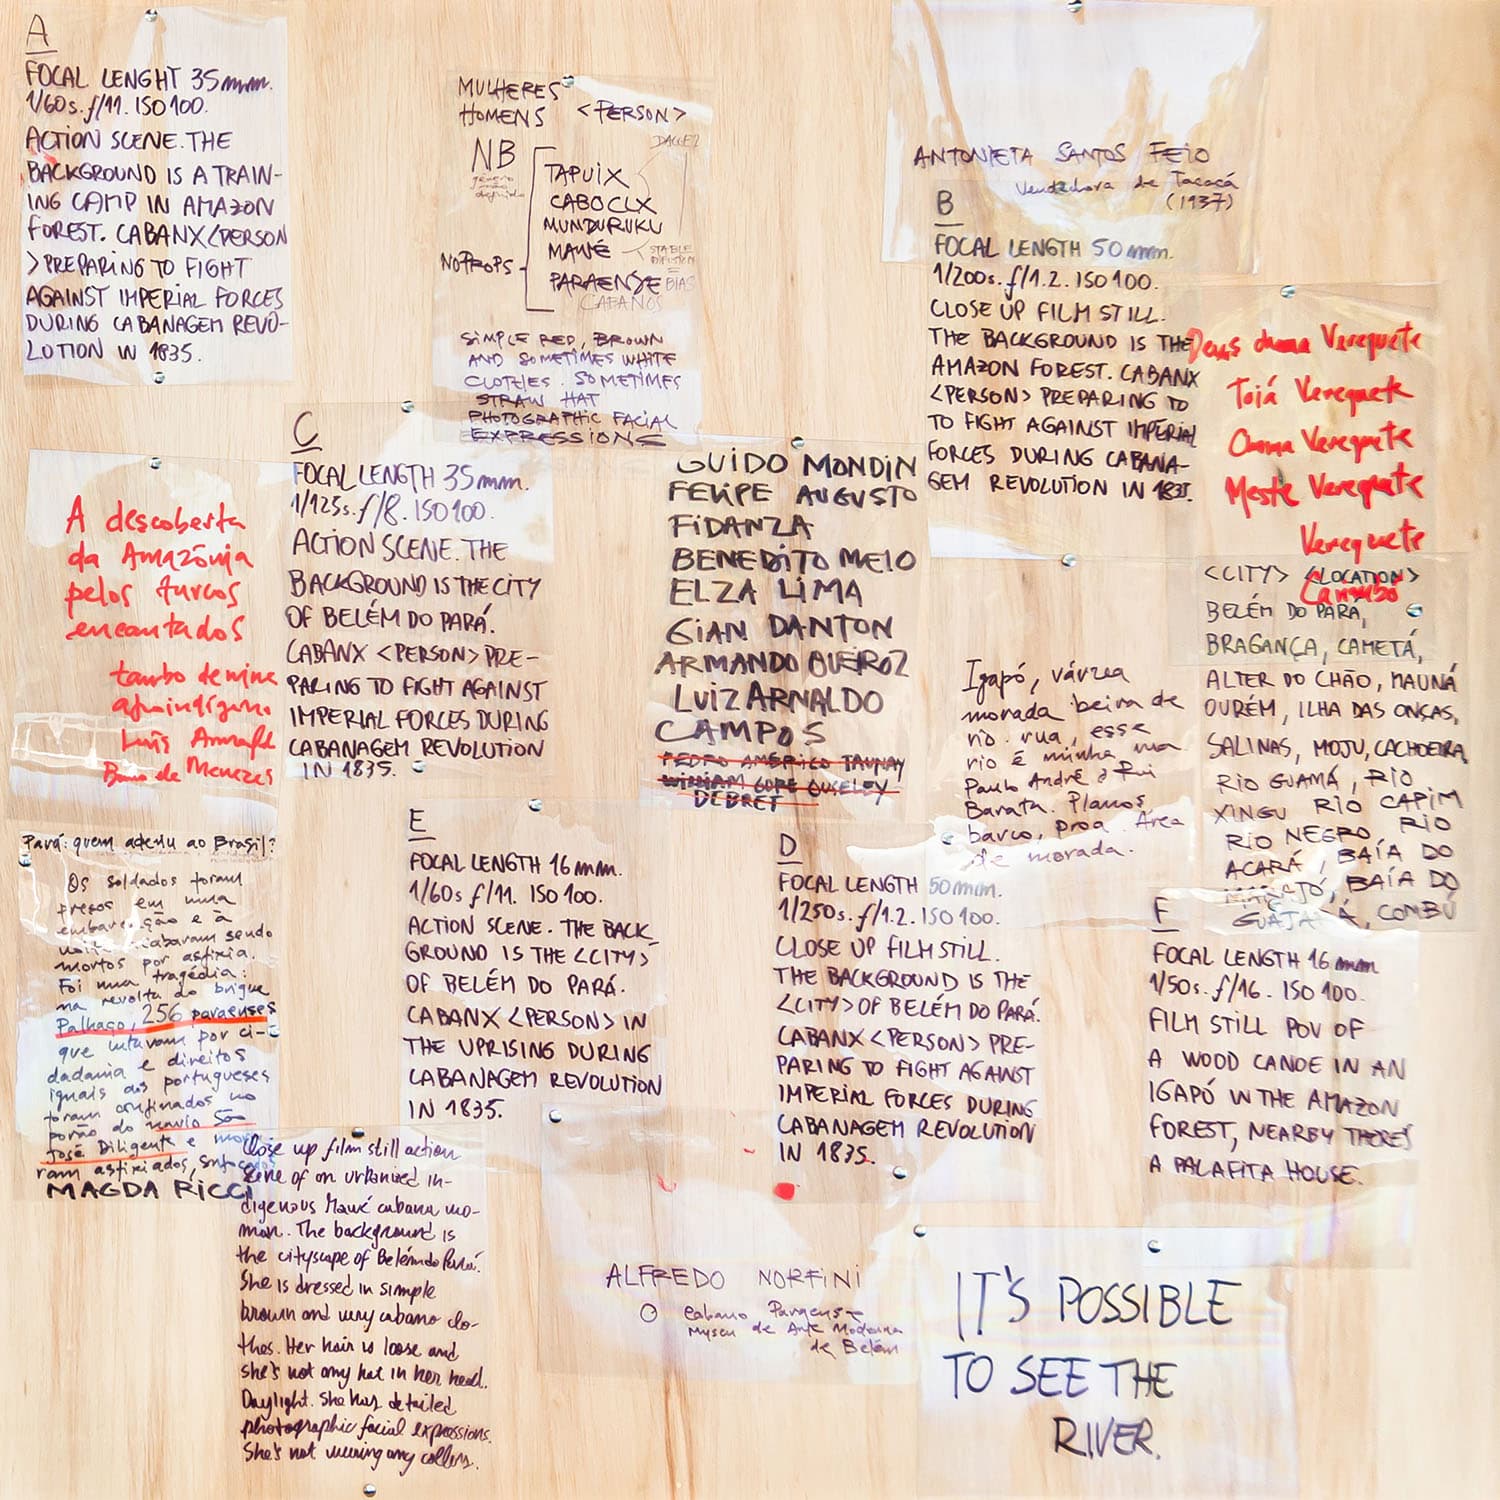 A
FOCAL LENGHT 35mm.
1/60s. f/11. ISO 100.
ACTION SCENE. THE
BACKGROUND IS A TRAIN-
ING CAMP IN AMAZON
FOREST. CABANX <PERSON
> PREPARING TO FIGHT
AGAINST IMPERIAL FORCES
DURING CABANAGEM REVO-
LUTION IN 1835.
MULHERES
HOMENS <PERSON>
NB
gênero
não
definido
DALLE2
TAPUIX
CABOCLX
MUNDURUKU
MAWÉ
STABLE
DIFUSION
=
BIAS
NO PROPS
PARAENSE
CABANOS
SIMPLE RED, BROWN
AND SOMETIMES WHITE
CLOTHES. SOMETIMES
STRAW HAT
PHOTOGRAPHIC FACIAL
EXPRESSIONS
ANTONIETA SANTOS FEIO
Vendedora de Tacacá
(1937)
B
FOCAL LENGTH 50mm.
1/200s. f/1.2. ISO 100.
CLOSE UP FILM STILL.
THE BACKGROUND IS THE
AMAZON FOREST. CABANX
<PERSON> PREPARING TO
TO FIGHT AGAINST IMPERIAL
FORCES DURING CABANA-
GEM REVOLUTION IN 1835.
Verequete
Toiá Verequete
Verequete
Verequete
Verequete
C
FOCAL LENGTH 35mm.
1/125s. f/8. ISO 100.
ACTION SCENE. THE
BACKGROUND IS THE CITY
OF BELÉM DO PARÁ.
CABANX <PERSON> PRE-
PARING TO FIGHT AGAINST
IMPERIAL FORCES DURING
CABANAGEM REVOLUTION
IN 1835.
A descoberta
da Amazônia
pelos turcos
encantados
tambo de mina
afroindígena
Luís Arnaldo
de Menezes
GUIDO MONDIN
FELIPE AUGUSTO
FIDANZA
BENEDITO MELO
ELZA LIMA
GIAN DANTON
ARMANDO QUEIROZ
LUIZ ARNALDO
CAMPOS
PEDRO AMÉRICO TAUNAY
WILLIAM GORE OUSELEY
DEBRET
<CITY> <LOCATION>
Carimbó
BELÉM DO PARÁ,
BRAGANÇA, CAMETÁ,
ALTER DO CHÃO, MAUNÁ
OURÉM, ILHA DAS ONÇAS,
SALINAS, MOJU, CACHOEIRA,
RIO GUAMÁ, RIO
XINGU RIO CAPIM
RIO NEGRO RIO
ACARÁ, BAÍA DO
MARAJÓ, BAÍA DO
GUAJARÁ, COMBÚ
Igapó, várzea
morada beira de
rio. rua, esse
rio é minha rua
Paulo André e Rui
Barata. Planos
barco, proa. Área
de morada.
Pará: quem aderiu ao Brasil?
Os soldados foram
presos em uma
embarcação e à
noite acabaram sendo
mortos por asfixia.
Foi uma tragédia:
na revolta do brigue
Palhaço, 256 paraenses
que lutavam por ci-
dadania e direitos
iguais aos portugueses
foram confinados no
porão do navio São
José Diligente e mor
ram asfixiados, sufocados
MAGDA RICCI
E
FOCAL LENGTH 16mm.
1/60s f/11. ISO 100.
ACTION SCENE. THE BACK-
GROUND IS THE <CITY>
OF BELÉM DO PARÁ.
CABANX <PERSON> IN
THE UPRISING DURING
CABANAGEM REVOLUTION
IN 1835.
D
FOCAL LENGTH 50mm.
1/250s. f/1.2. ISO 100.
CLOSE UP FILM STILL.
THE BACKGROUND IS THE
<CITY> OF BELÉM DO PARÁ.
CABANX <PERSON> PRE-
PARING TO FIGHT AGAINST
IMPERIAL FORCES DURING
CABANAGEM REVOLUTION
IN 1835.
F
FOCAL LENGTH 16mm
1/50s. f/16. ISO 100.
FILM STILL POV OF
A WOOD CANOE IN AN
IGAPÓ IN THE AMAZON
FOREST, NEARBY THERE'S
A PALAFITA HOUSE.
Close up film still action
scene of an urbanized in-
digenous Mawé cabana wo-
man. The background is
the cityscape of Belém do Pará.
She is dressed in simple
brown and very cabano clo-
thes. Her hair is loose and
she's not any hat in her head.
Daylight. She has detailed
photographic facial expressions.
She's not wearing any collers.
ALFREDO NORFINI
O Cabano Paraense
Museu de Arte Moderna
de Belém
IT'S POSSIBLE
TO SEE THE
RIVER.